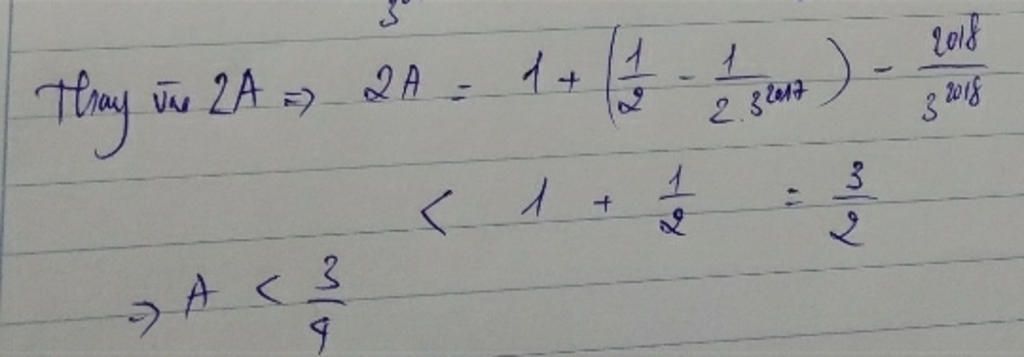 3
Thay vào 2A => 2A = 1 + (1/2 - 1/2.3^2017) - 2018/3^2018
< 1 + 1/2 = 3/2
=> A < 3/4